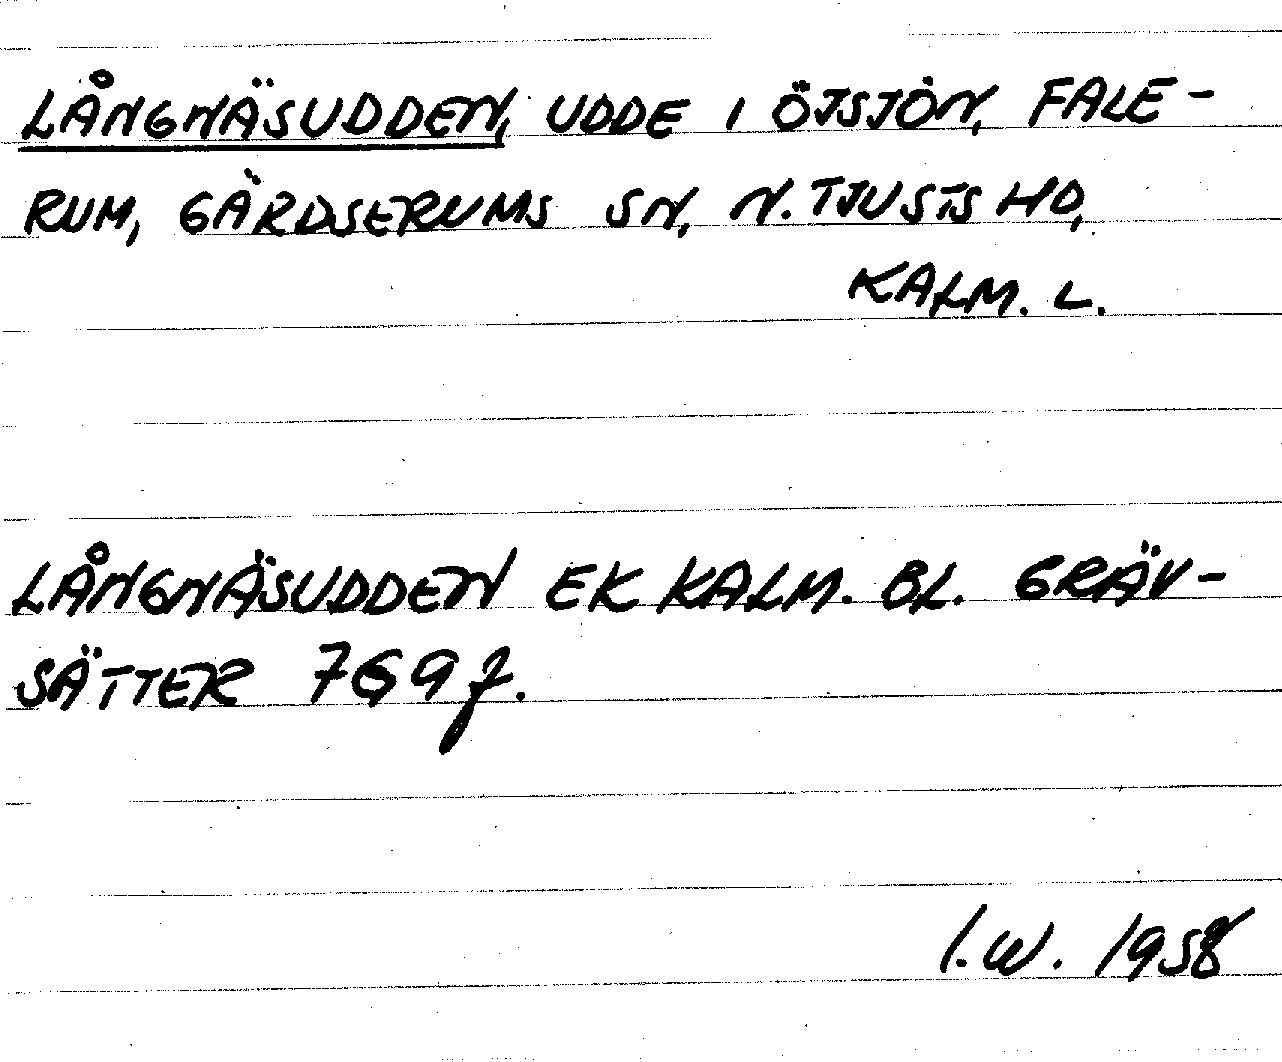 LÅNGNÄSUDDEN, UDDE I ÖJSJÖN, FALE-
RUM, GÄRDSERUMS SN, N. TJUSTS HD,
KALM. L.
LÅNGNÄSUDDEN EK KALM. BL. GRÄV-
SÄTTER 769 f.
I.W. 1958